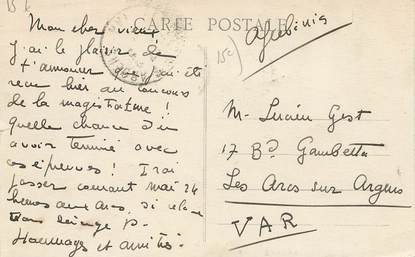 15 F
CARTE POSTALE
Mon cher vieux
J'ai le plaisir de
t'annoncer que j'ai été
reçu hier au concours
de la magistrature !
quelle chance d'en
avoir terminé avec
ces épreuves ! J'irai
passer courant mai 24
heures aux Arcs, si cela
ne
Hommages et amitiés
15c
M. Lucien Gest
17 Bd Gambetta
Les Arcs sur Argens
VAR